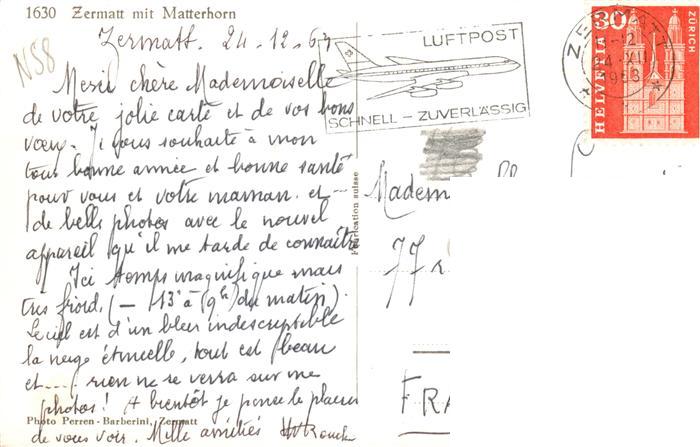 1630 Zermatt mit Matterhorn
N58
Zermatt. 24.12.63
Merci chère Mademoiselle
de votre jolie carte et de vos bons
vœux. Je vous souhaite à mon
tour bonne année et bonne santé
pour vous et votre maman. et –
de belles photos avec le nouvel
appareil qu'il me tarde de connaître
Ici temps magnifique mais
très froid. (– 13° à (9h) du matin).
Le ciel est d'un bleu indescriptible
la neige étincelle, tout est beau
et .... rien ne se verra sur me
photos! A bientôt je pense le plaisir
de vous voir. Mille amitiés
Photo Perren-Barberini, Zermatt
Fabrication suisse
LUFTPOST
SCHNELL - ZUVERLÄSSIG
30
HELVETIA
ZÜRICH
ZERMATT
24.XII
1963
Madem
77
FRA